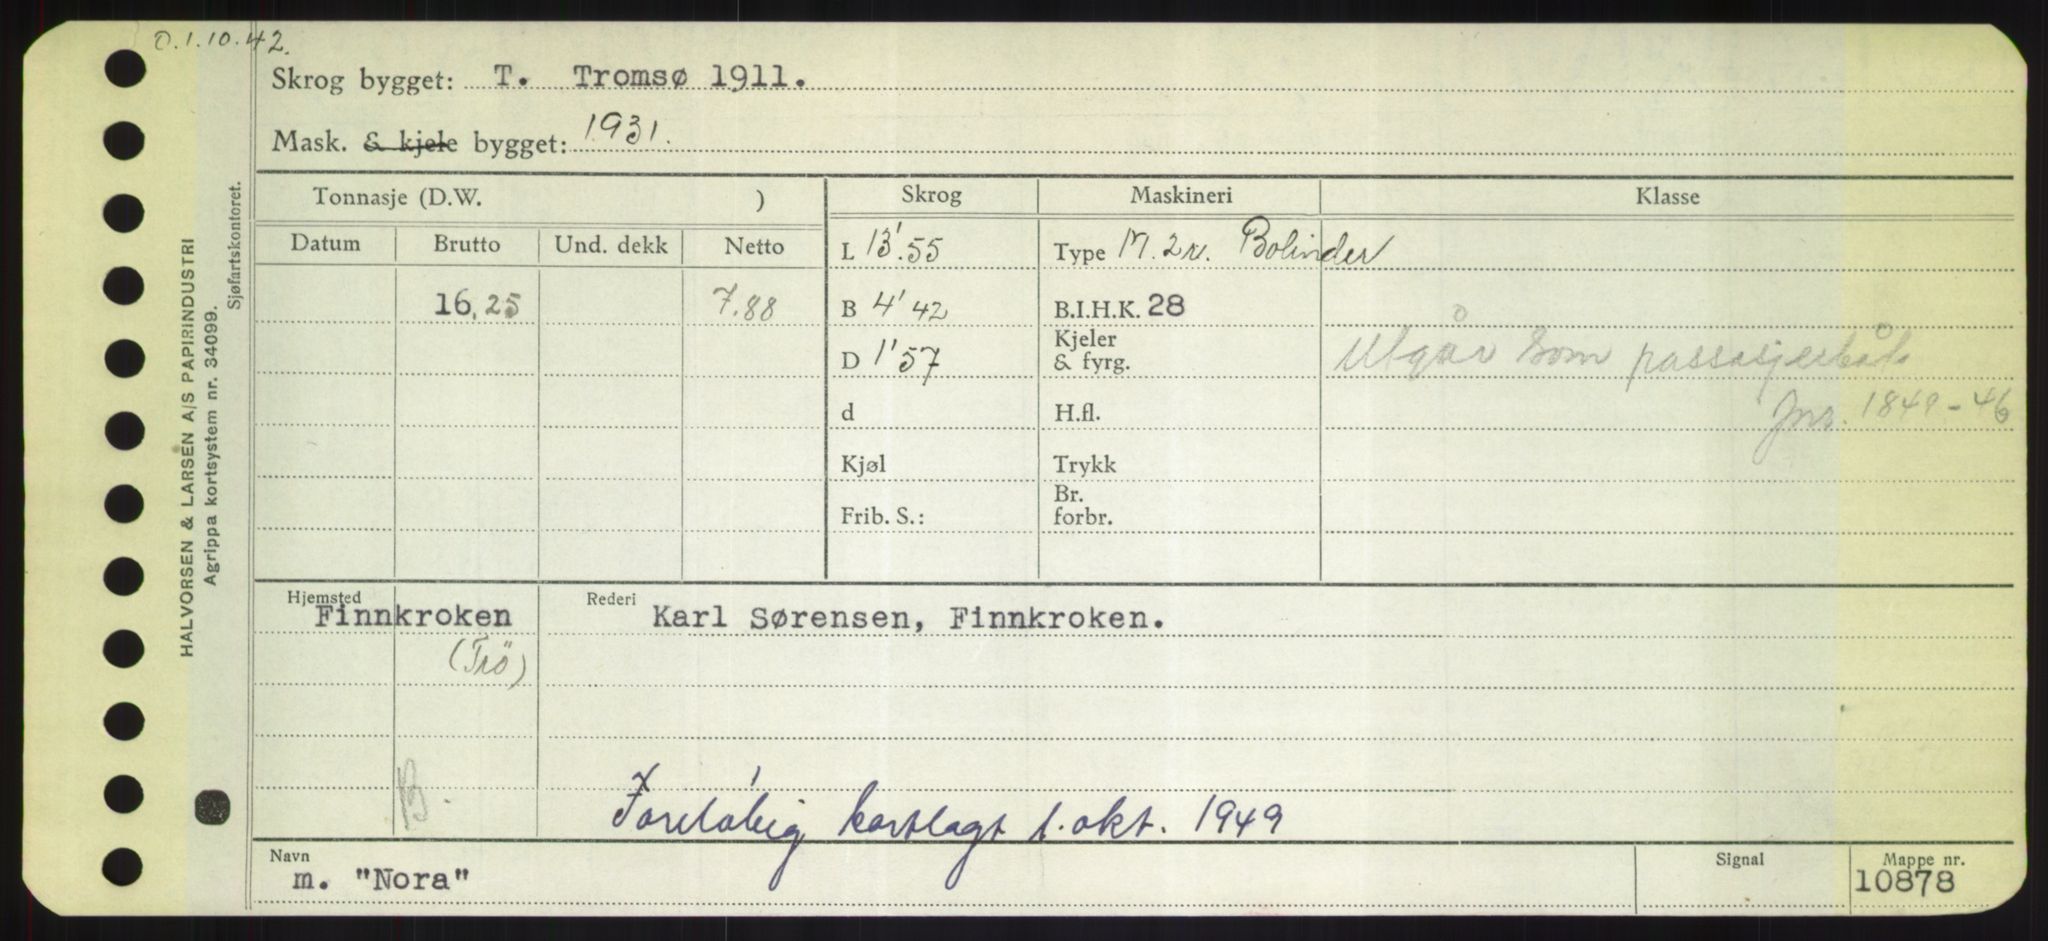 O.1.10.42.
Skrog bygget: T. Tromsø 1911.
Mask. & kjele bygget: 1931.
Tonnasje (D.W. )
Skrog
Maskineri
Klasse
Datum
Brutto
Und. dekk
Netto
L 13'.55
Type M. 2 Bolinder
16,25
7.88
B 4'42
B.I.H.K. 28
D 1'57
Kjeler
& fyrg.
Utgår som passasjerbåt
Jnr. 1849-46
d
H.fl.
Kjøl
Trykk
Frib. S.:
Br.
forbr.
Hjemsted
Rederi
Finnkroken
Karl Sørensen, Finnkroken.
(Trö)
B.
Foreløbig kartlagt 1. okt. 1949
Navn
Signal
Mappe nr.
m. "Nora"
10878
HALVORSEN & LARSEN A/S PAPIRINDUSTRI
Agrippa kortsystem nr. 34099.
Sjøfartskontoret.